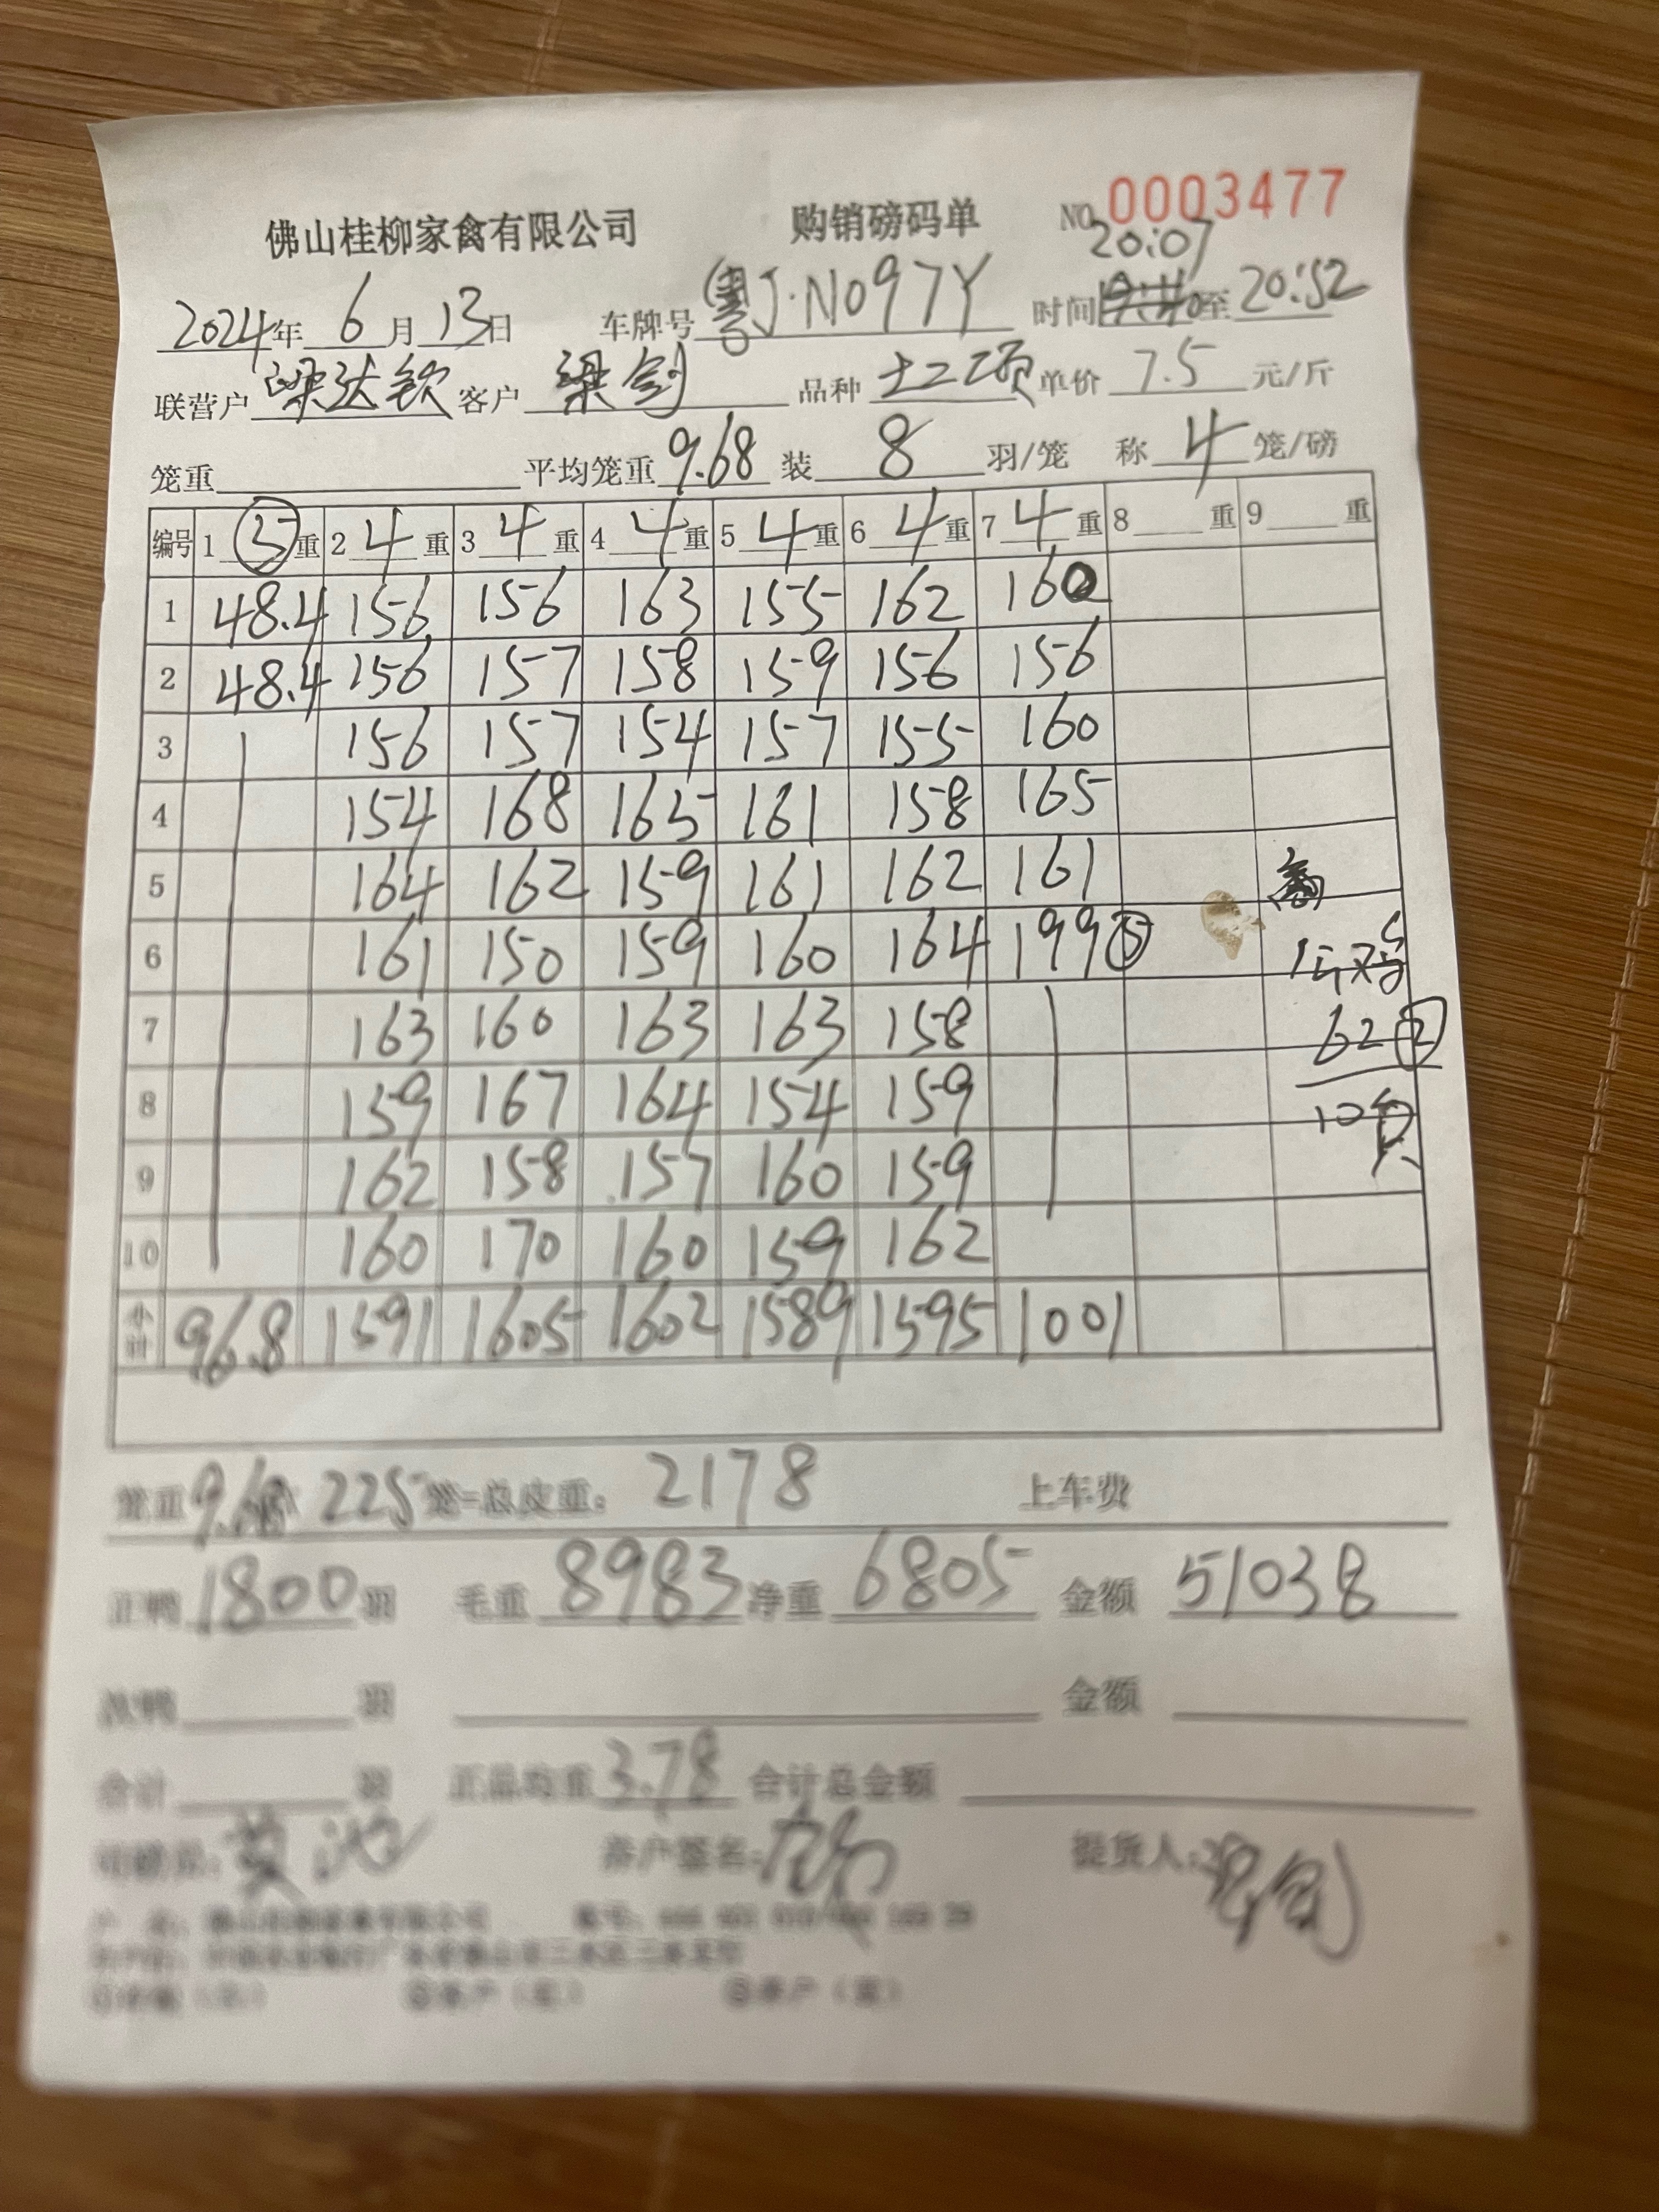 佛山桂柳家禽有限公司 购销磅码单 NO.0003477
20:07
2024年 6月 13日 车牌号 粤J·N097Y 时间 至 20:52
联营户 梁达钦 客户 梁剑 品种 土二项 单价 7.5 元/斤
笼重 平均笼重 9.68 装 8 羽/笼 称 4 笼/磅
编号 1 5 重 2 4 重 3 4 重 4 4 重 5 4 重 6 4 重 7 4 重 8 重 9 重
1 48.4 156 156 163 155 162 160
2 48.4 156 157 158 159 156 156
3 156 157 154 157 155 160
4 154 168 165 161 158 165
5 164 162 159 161 162 161
6 161 150 159 160 164 199 ⑤
7 163 160 163 163 158 62 2
8 159 167 164 154 159 10
9 162 158 157 160 159
10 160 170 160 159 162
小计 96.8 1591 1605 1602 1589 1595 1001
笼重 9.68 × 225 笼=总皮重: 2178 上车费
正鸭 1800 羽 毛重 8983 净重 6805 金额 51038
次鸭 羽 金额
合计 羽 正品均重 3.78 合计总金额
司磅员: 养户签名: 提货人: 梁剑